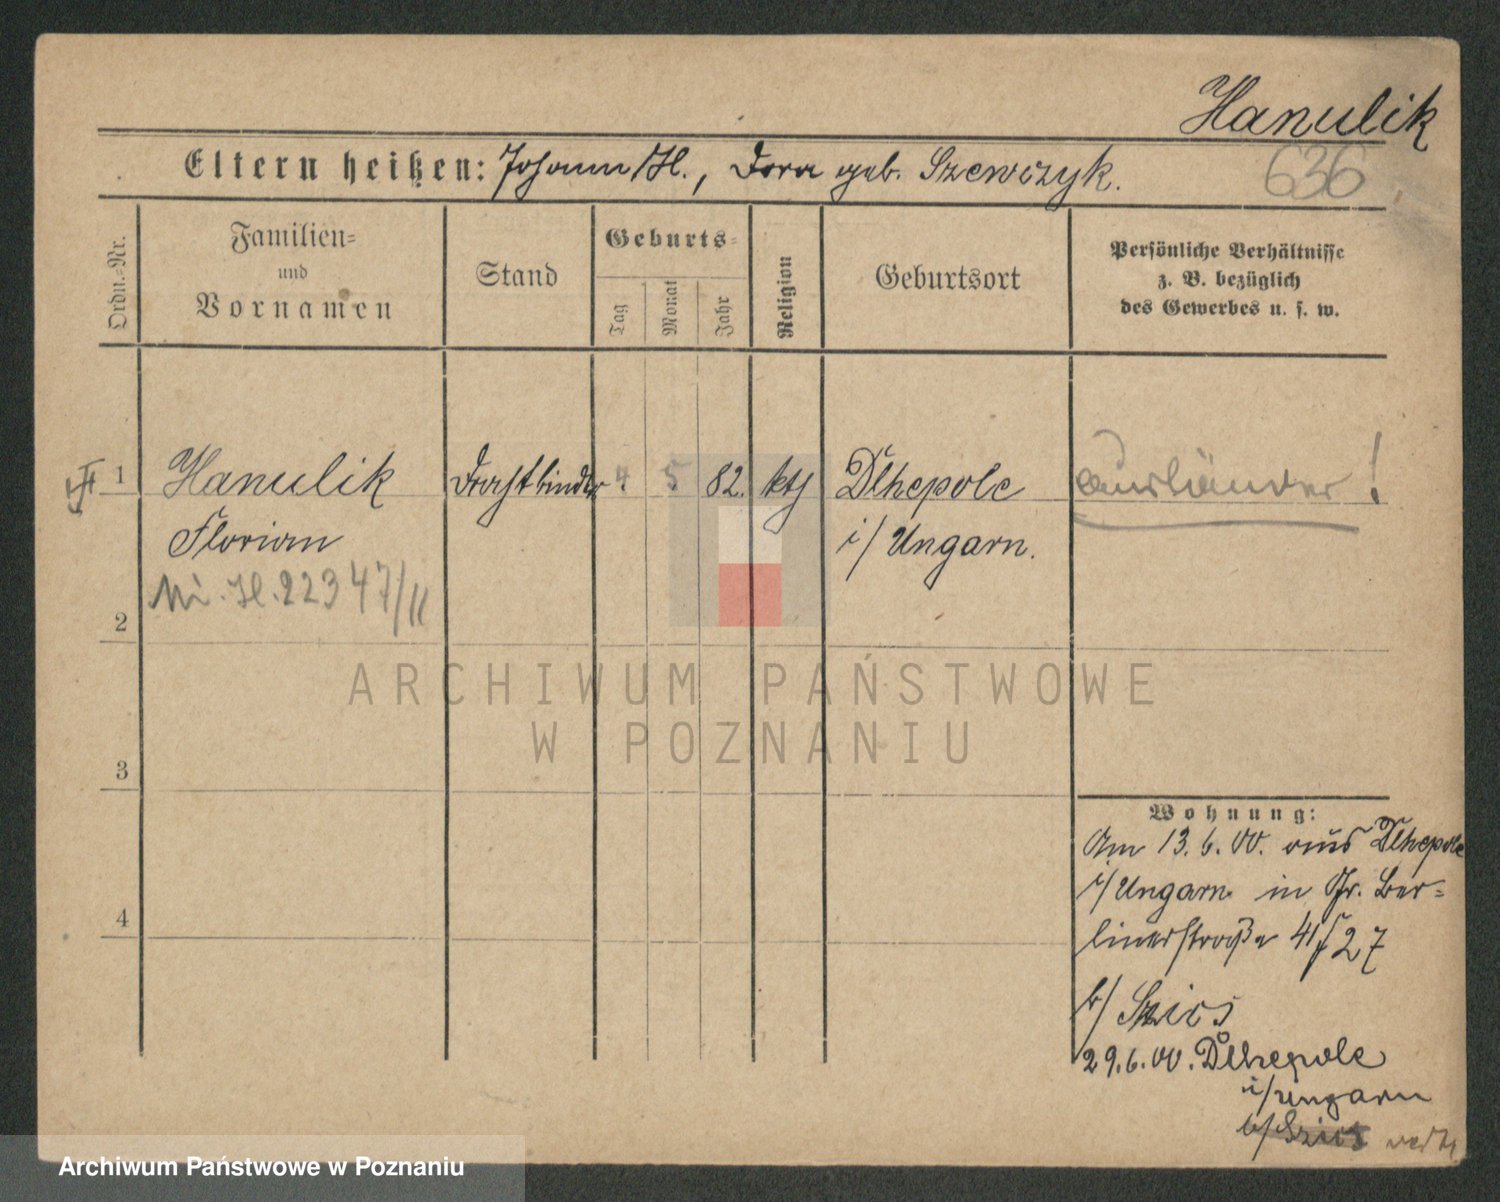 Hanulik
636
Eltern heißen: Johann H., Dora geb. Szewczyk.
Ordn.-Nr.
Familien-
und
Vornamen
Stand
Geburts-
Tag
Monat
Jahr
Religion
Geburtsort
Persönliche Verhältnisse
z. B. bezüglich
des Gewerbes u. s. w.
1
Hanulik
Drahtbinder
4.
5
82.
kth
Dlhepole
Ausländer!
Florian
i/ Ungarn.
H. 22347/II
2
ARCHIWUM PAŃSTWOWE
W POZNANIU
3
4
Wohnung:
Am 13.6.00. aus Dlhepole
i/ Ungarn in Gr. Ber-
linerstraße 41/27
b/
29.6.00. Dlhepole
i/ Ungarn
b/
Archiwum Państwowe w Poznaniu